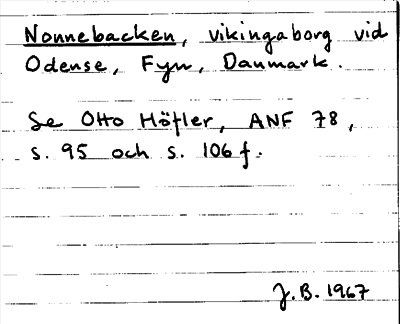 Nonnebacken, vikingaborg vid
Odense, Fyn, Danmark.
Se Otto Höfler, ANF 78,
s. 95 och s. 106 f.
J.B. 1967